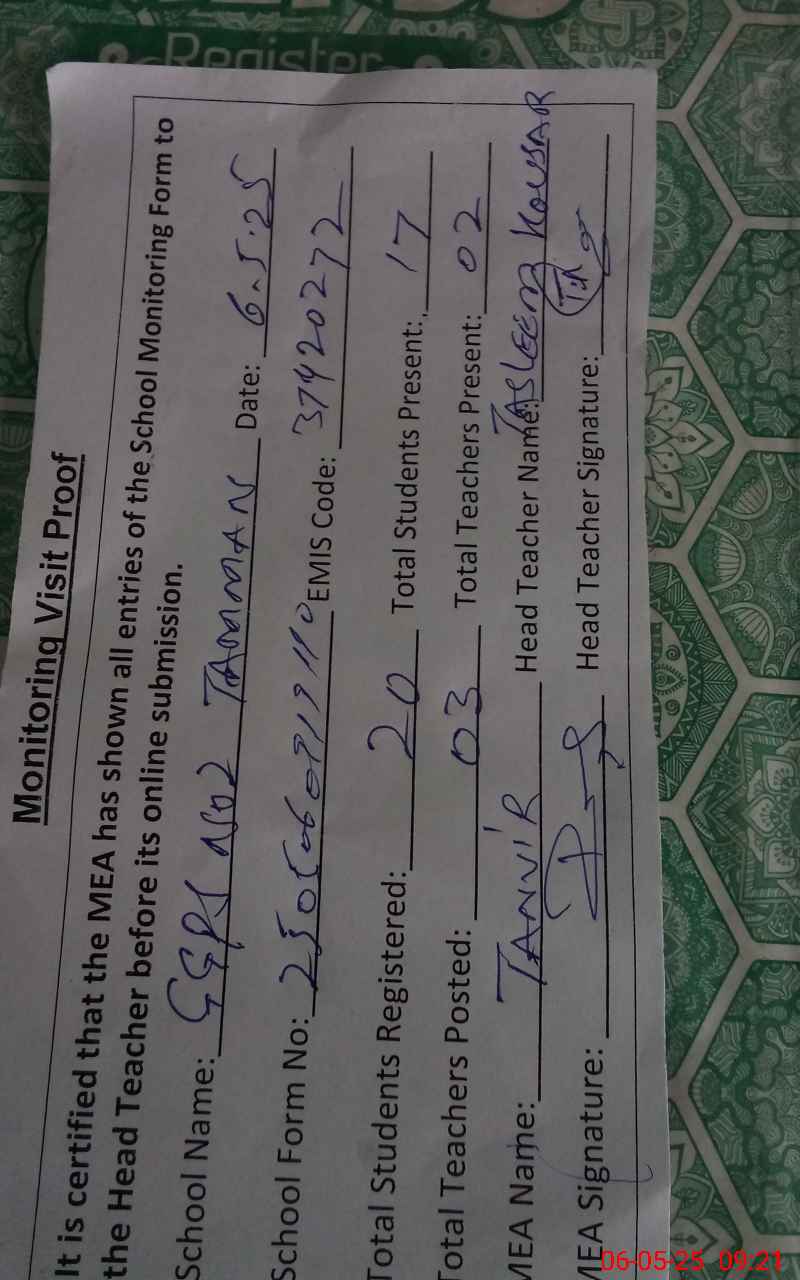 Register
Monitoring Visit Proof
It is certified that the MEA has shown all entries of the School Monitoring Form to
the Head Teacher before its online submission.
School Name: GGPS NO 2 TAMMAN Date: 6.5.25
School Form No: EMIS Code: 37420272
Total Students Registered: 20 Total Students Present: 17
Total Teachers Posted: 03 Total Teachers Present: 02
MEA Name: TANVIR Head Teacher Name: TASLEEM KOUSAR
MEA Signature: Head Teacher Signature:
06-05-25 09:21